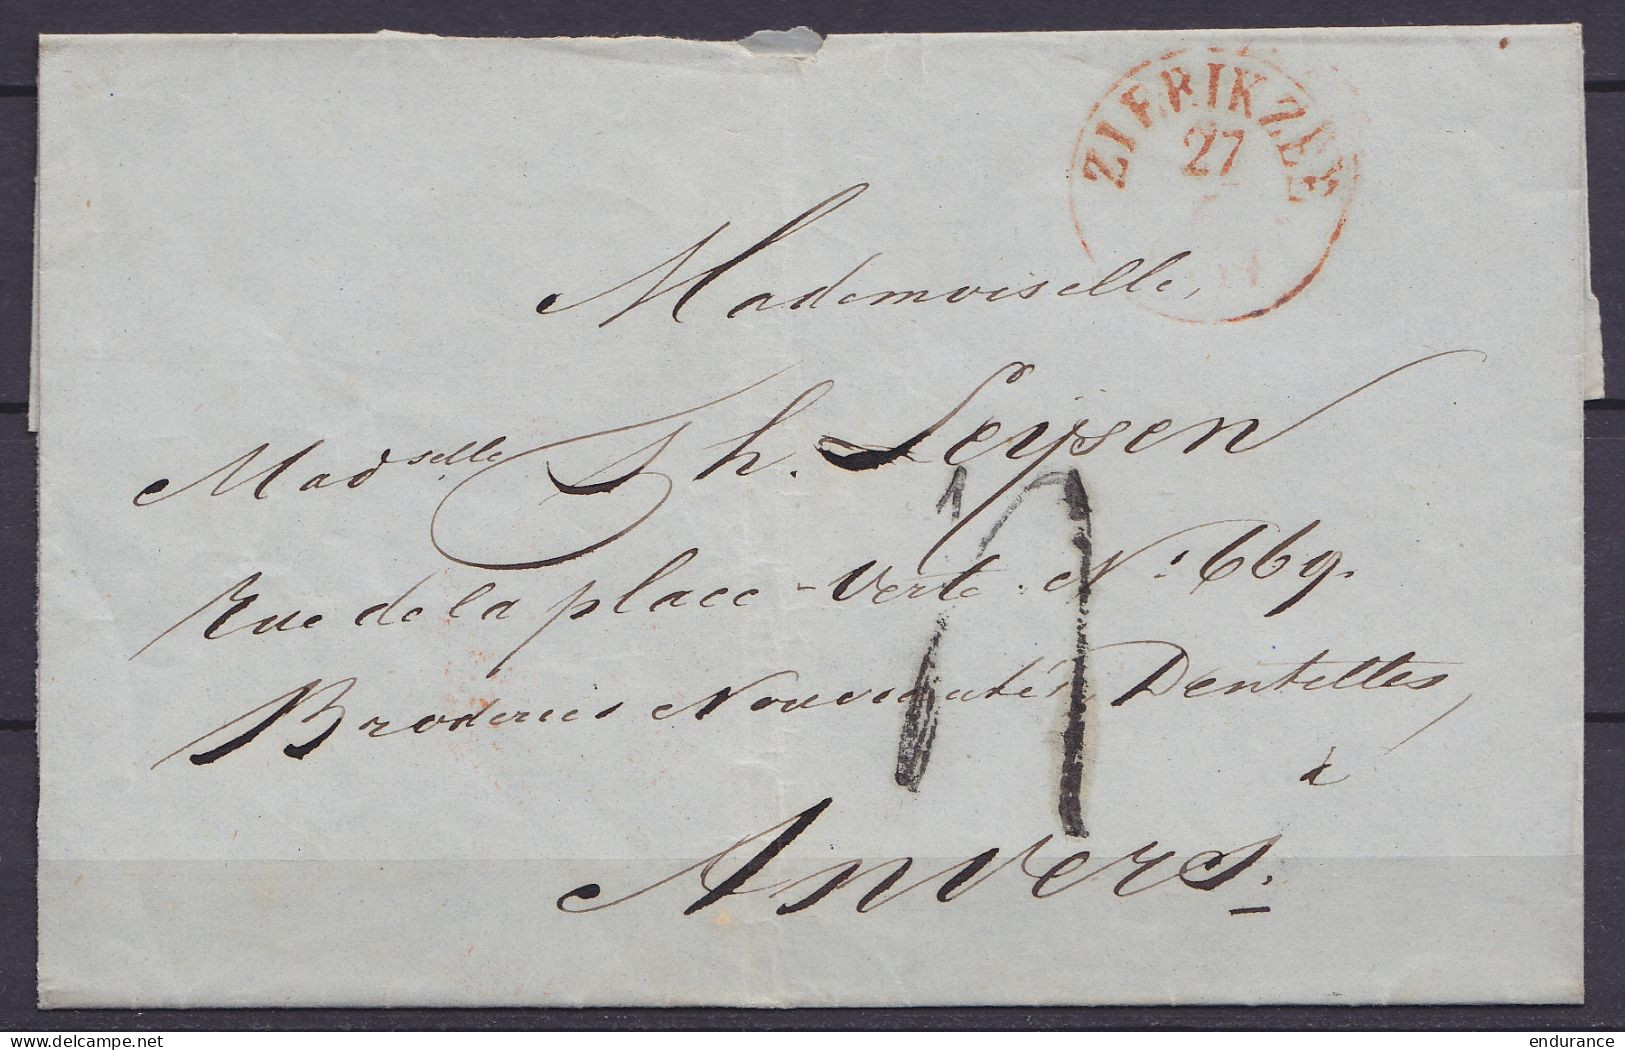 ZIERIKZEE
27
Mademoiselle,
Madselle Th. Leijsen
Rue de la place-Verte No 669.
Broderies Nouveautés Dentelles,
à
Anvers.
delcampe.net
endurance